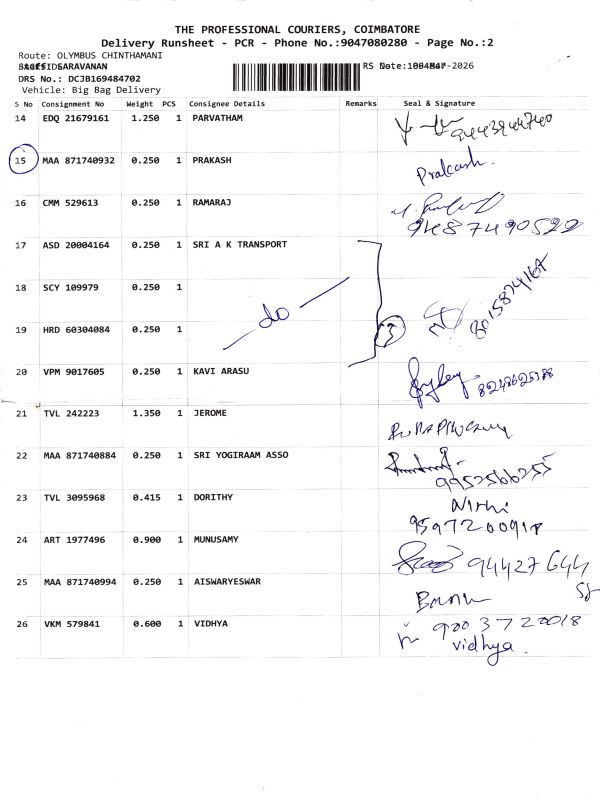 THE PROFESSIONAL COURIERS, COIMBATORE
Delivery Runsheet - PCR - Phone No.:9047080280 - Page No.:2
Route: OLYMBUS CHINTHAMANI
SARAVANAN
DRS No.: DCJB169484702
Vehicle: Big Bag Delivery
S No Consignment No Weight PCS Consignee Details Remarks Seal & Signature
14 EDQ 21679161 1.250 1 PARVATHAM
15 MAA 871740932 0.250 1 PRAKASH Prakash.
16 CMM 529613 0.250 1 RAMARAJ
9487490522
17 ASD 20004164 0.250 1 SRI A K TRANSPORT
18 SCY 109979 0.250 1
19 HRD 60304084 0.250 1 do 3
20 VPM 9017605 0.250 1 KAVI ARASU
21 TVL 242223 1.350 1 JEROME
22 MAA 871740884 0.250 1 SRI YOGIRAAM ASSO
9952566255
23 TVL 3095968 0.415 1 DORITHY Nithi
24 ART 1977496 0.900 1 MUNUSAMY 94427644
25 MAA 871740994 0.250 1 AISWARYESWAR
26 VKM 579841 0.600 1 VIDHYA 9003720018
vidhya.